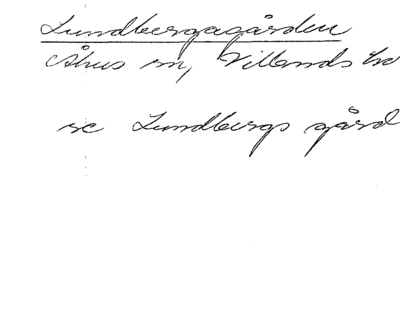 Lundbergagården
Åhus sn, Villands hd
se Lundbergs gård